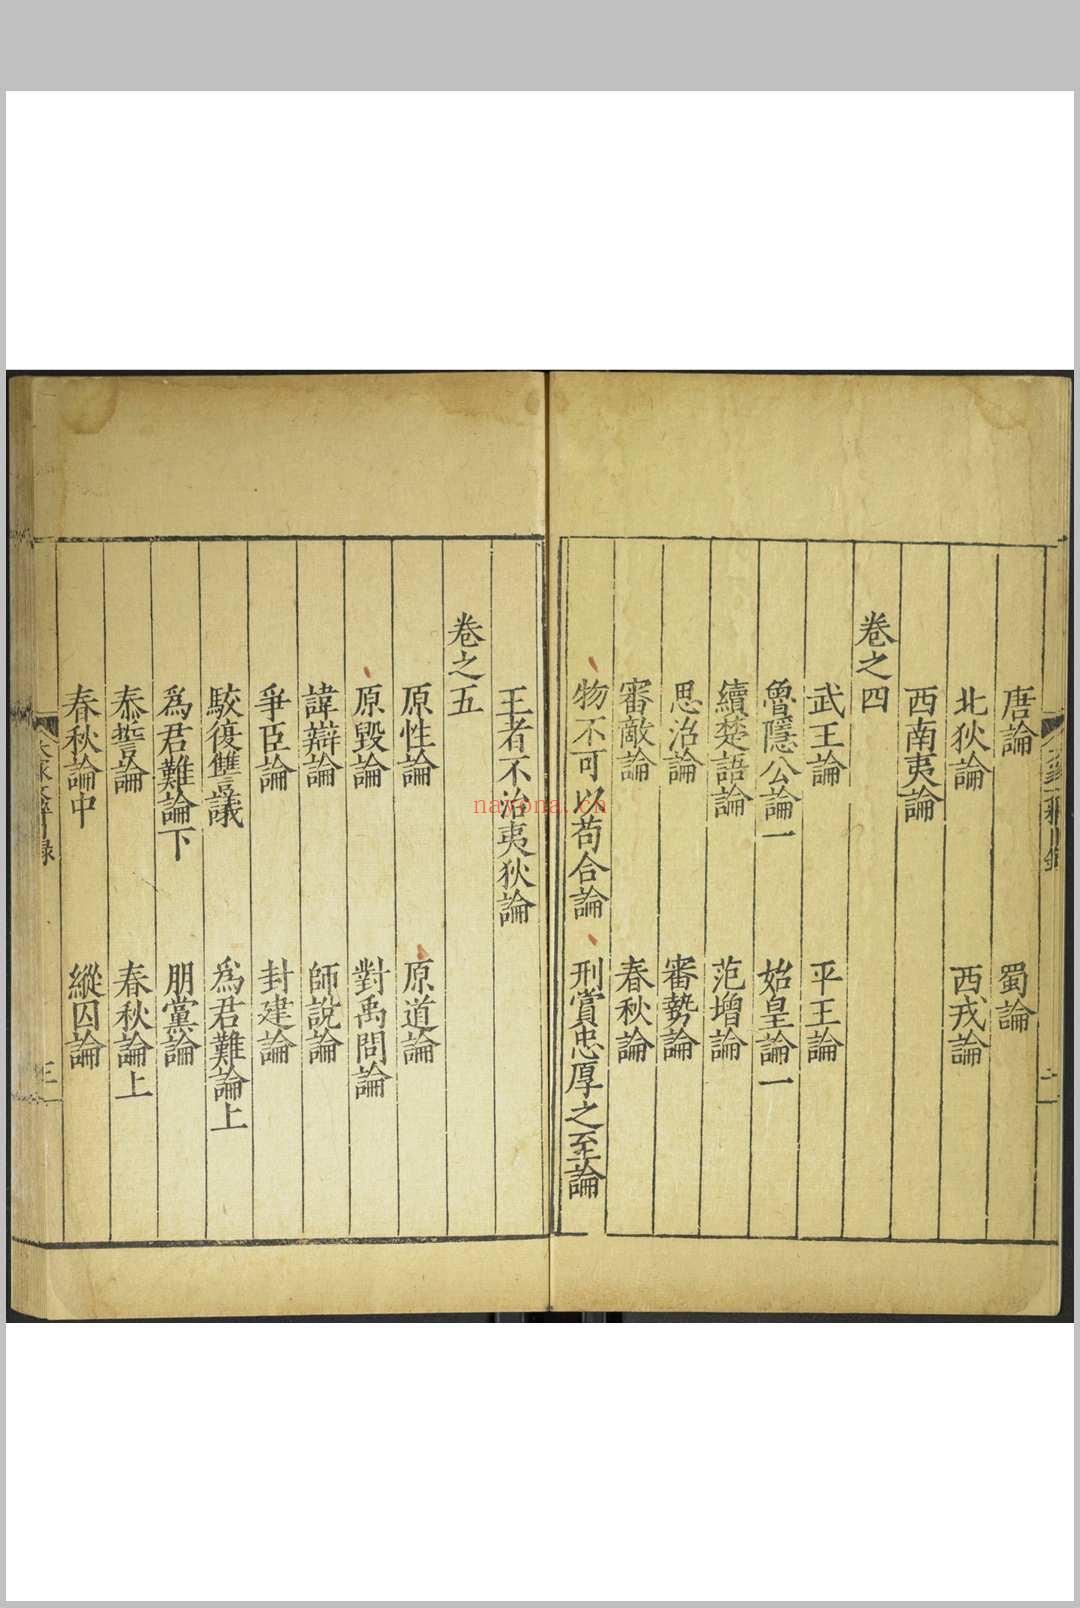 唐論　蜀論
北狄論　西戎論
西南夷論
卷之四
武王論　平王論
魯隱公論一　始皇論一
續楚語論　范增論
思治論　審勢論
審敵論　春秋論
物不可以苟合論　刑賞忠厚之至論
王者不治夷狄論
卷之五
原性論　原道論
原毀論　對禹問論
諱辯論　師說論
爭臣論　封建論
駁復讐議　爲君難論上
爲君難論下　朋黨論
泰誓論　春秋論上
春秋論中　縱囚論
三
nayona.cn